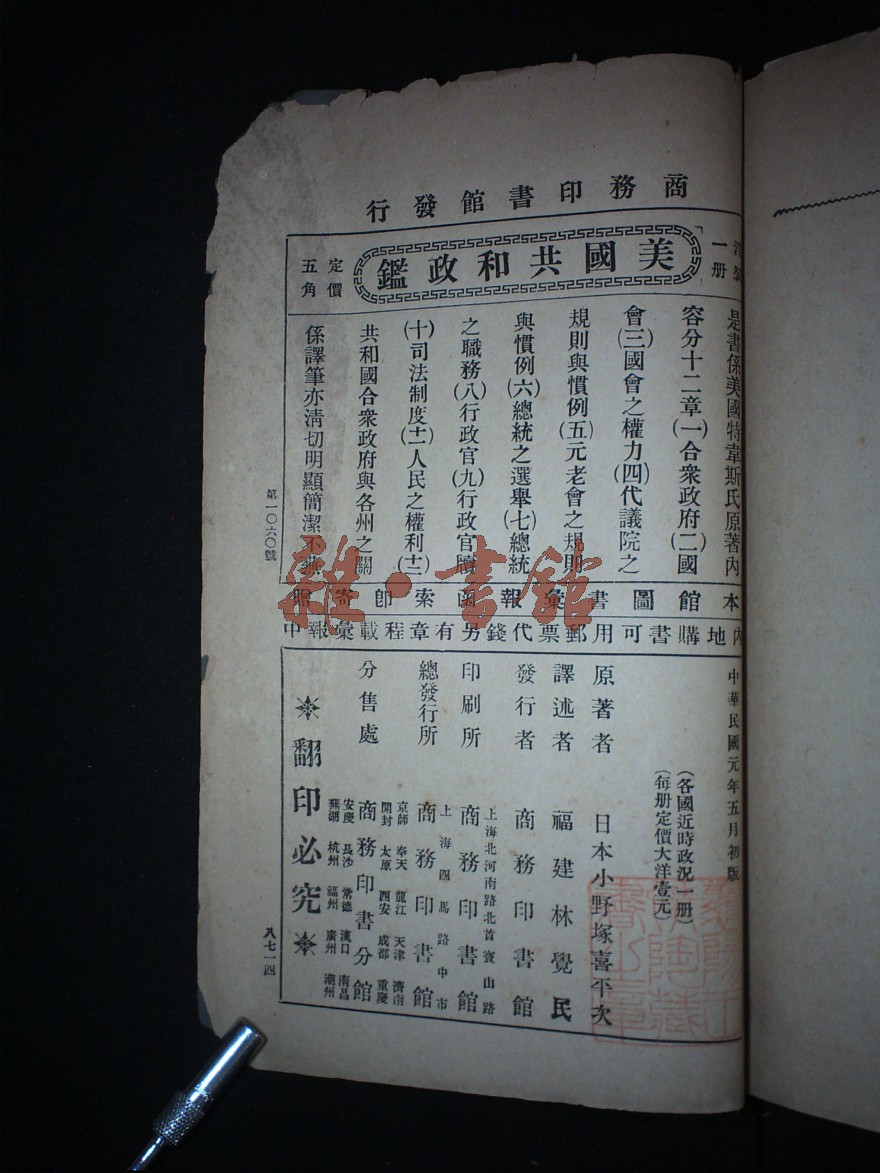 商務印書館發行
洋裝一册
美國共和政鑑
定價五角
是書係美國特韋斯氏原著內
容分十二章(一)合衆政府(二)國
會(三)國會之權力(四)代議院之
規則與慣例(五)元老會之規則
與慣例(六)總統之選舉(七)總統
之職務(八)行政官(九)行政官續
(十)司法制度(十一)人民之權利(十二)
共和國合衆政府與各州之關
係譯筆亦清切明顯簡潔不蕪
第一〇六〇號
本館圖書彙報函索即寄贈
內地購書可用郵票代錢另有章程載彙報中
中華民國元年五月初版
(各國近時政況一册)
(每册定價大洋壹元)
原著者 日本小野塚喜平次
譯述者 福建林覺民
發行者 商務印書館
上海北河南路北首寶山路
印刷所 商務印書館
上海四馬路中市
總發行所 商務印書館
京師 奉天 龍江 天津 濟南
開封 太原 西安 成都 重慶
分售處 商務印書分館
安慶 長沙 常德 漢口 南昌
蕪湖 杭州 福州 廣州 潮州
翻印必究
八七一四
雜·書館